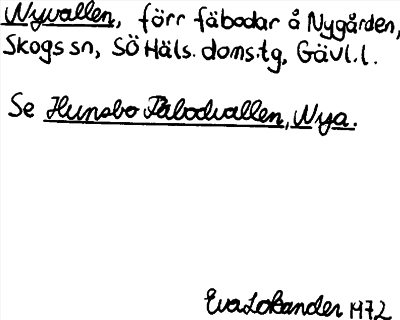 Nyvallen, förr fäbodar å Nygården,
Skogs sn, SÖ Häls. doms.tg, Gävl.l.
Se Hunsbo Fäbodvallen, Nya.
Eva 1972